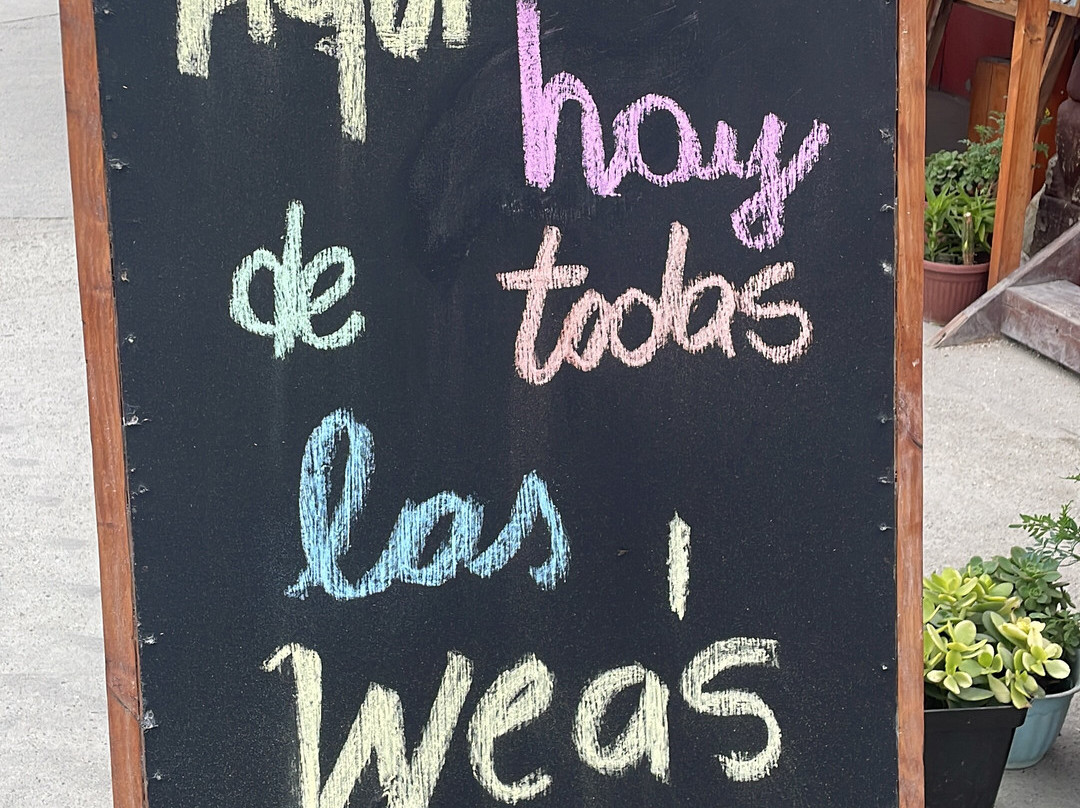 Aquí
hay
de todas
las
weás